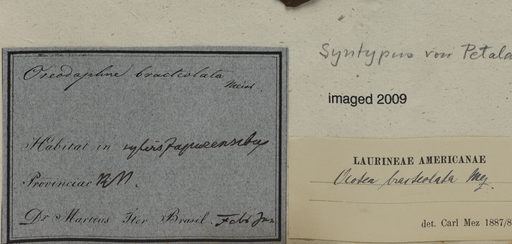 Oreodaphne bracteolata
Meisn.
Habitat in sylvis Japurensibus
Provinciae R.N.
Dr. Martius Iter Brasil. Febr. Jan
Syntypus von Petala
imaged 2009
LAURINEAE AMERICANAE
Ocotea bracteolata Mez
det. Carl Mez 1887/8